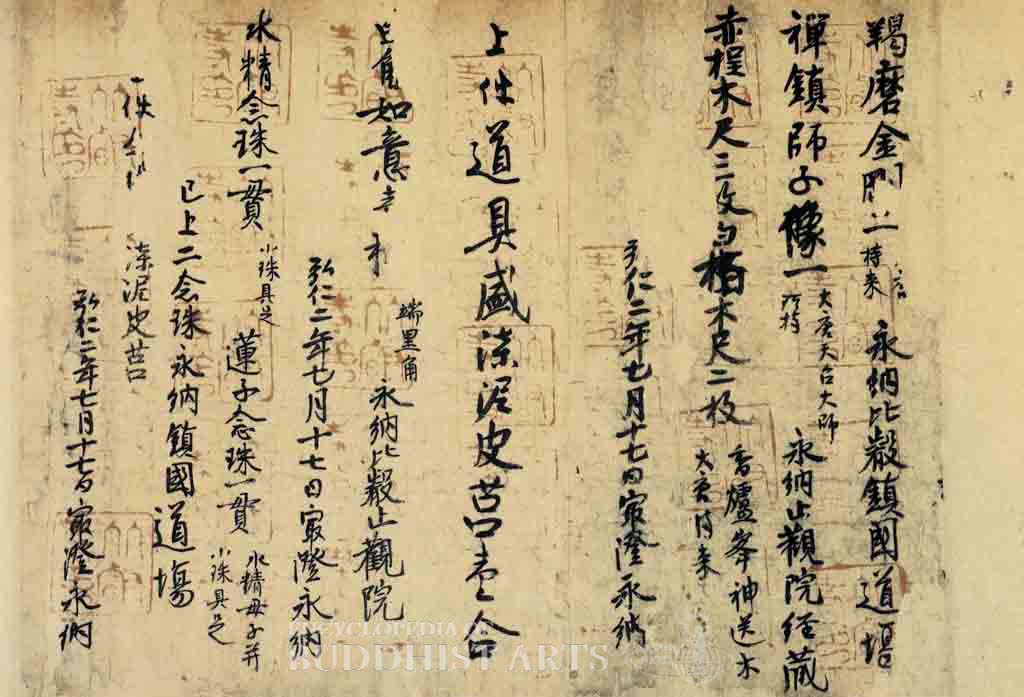 羯磨金剛二 持来 永納比叡鎮國道場
禪鎮師子像一 大唐天台大師所持 永納止觀院經藏
赤桯木尺三文 白栢木尺二枚 香爐峯神送木 大唐持来
弘仁二年七月十七日最澄永納
上件道具盛漆泥皮筥壹合
如意 端黒角 永納比叡止觀院
弘仁二年七月十七日最澄永納
水精念珠一貫 小珠具足 蓮子念珠一貫 水精母子并小珠具足
已上二念珠永納鎮國道場
漆泥皮筥
弘仁二年七月十七日最澄永納
ENCYCLOPEDIA OF
BUDDHIST ARTS